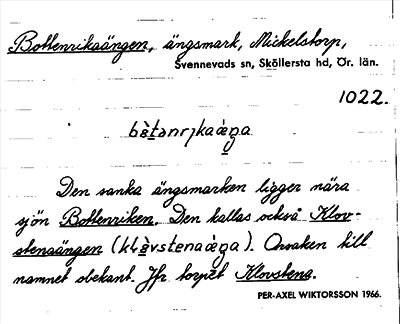 Bottenrikaängen, ängsmark, Mickelstorp,
Svennevads sn, Sköllersta hd, Ör. län.
1022.
bèt̲ənrɩkaàŋa
Den sanka ängsmarken ligger nära
sjön Bottenriken. Den kallas också Klov-
stensängen (kɬèvstenaàŋa). Orsaken till
namnet obekant. Jfr torpet Klovstens.
PER-AXEL WIKTORSSON 1966.